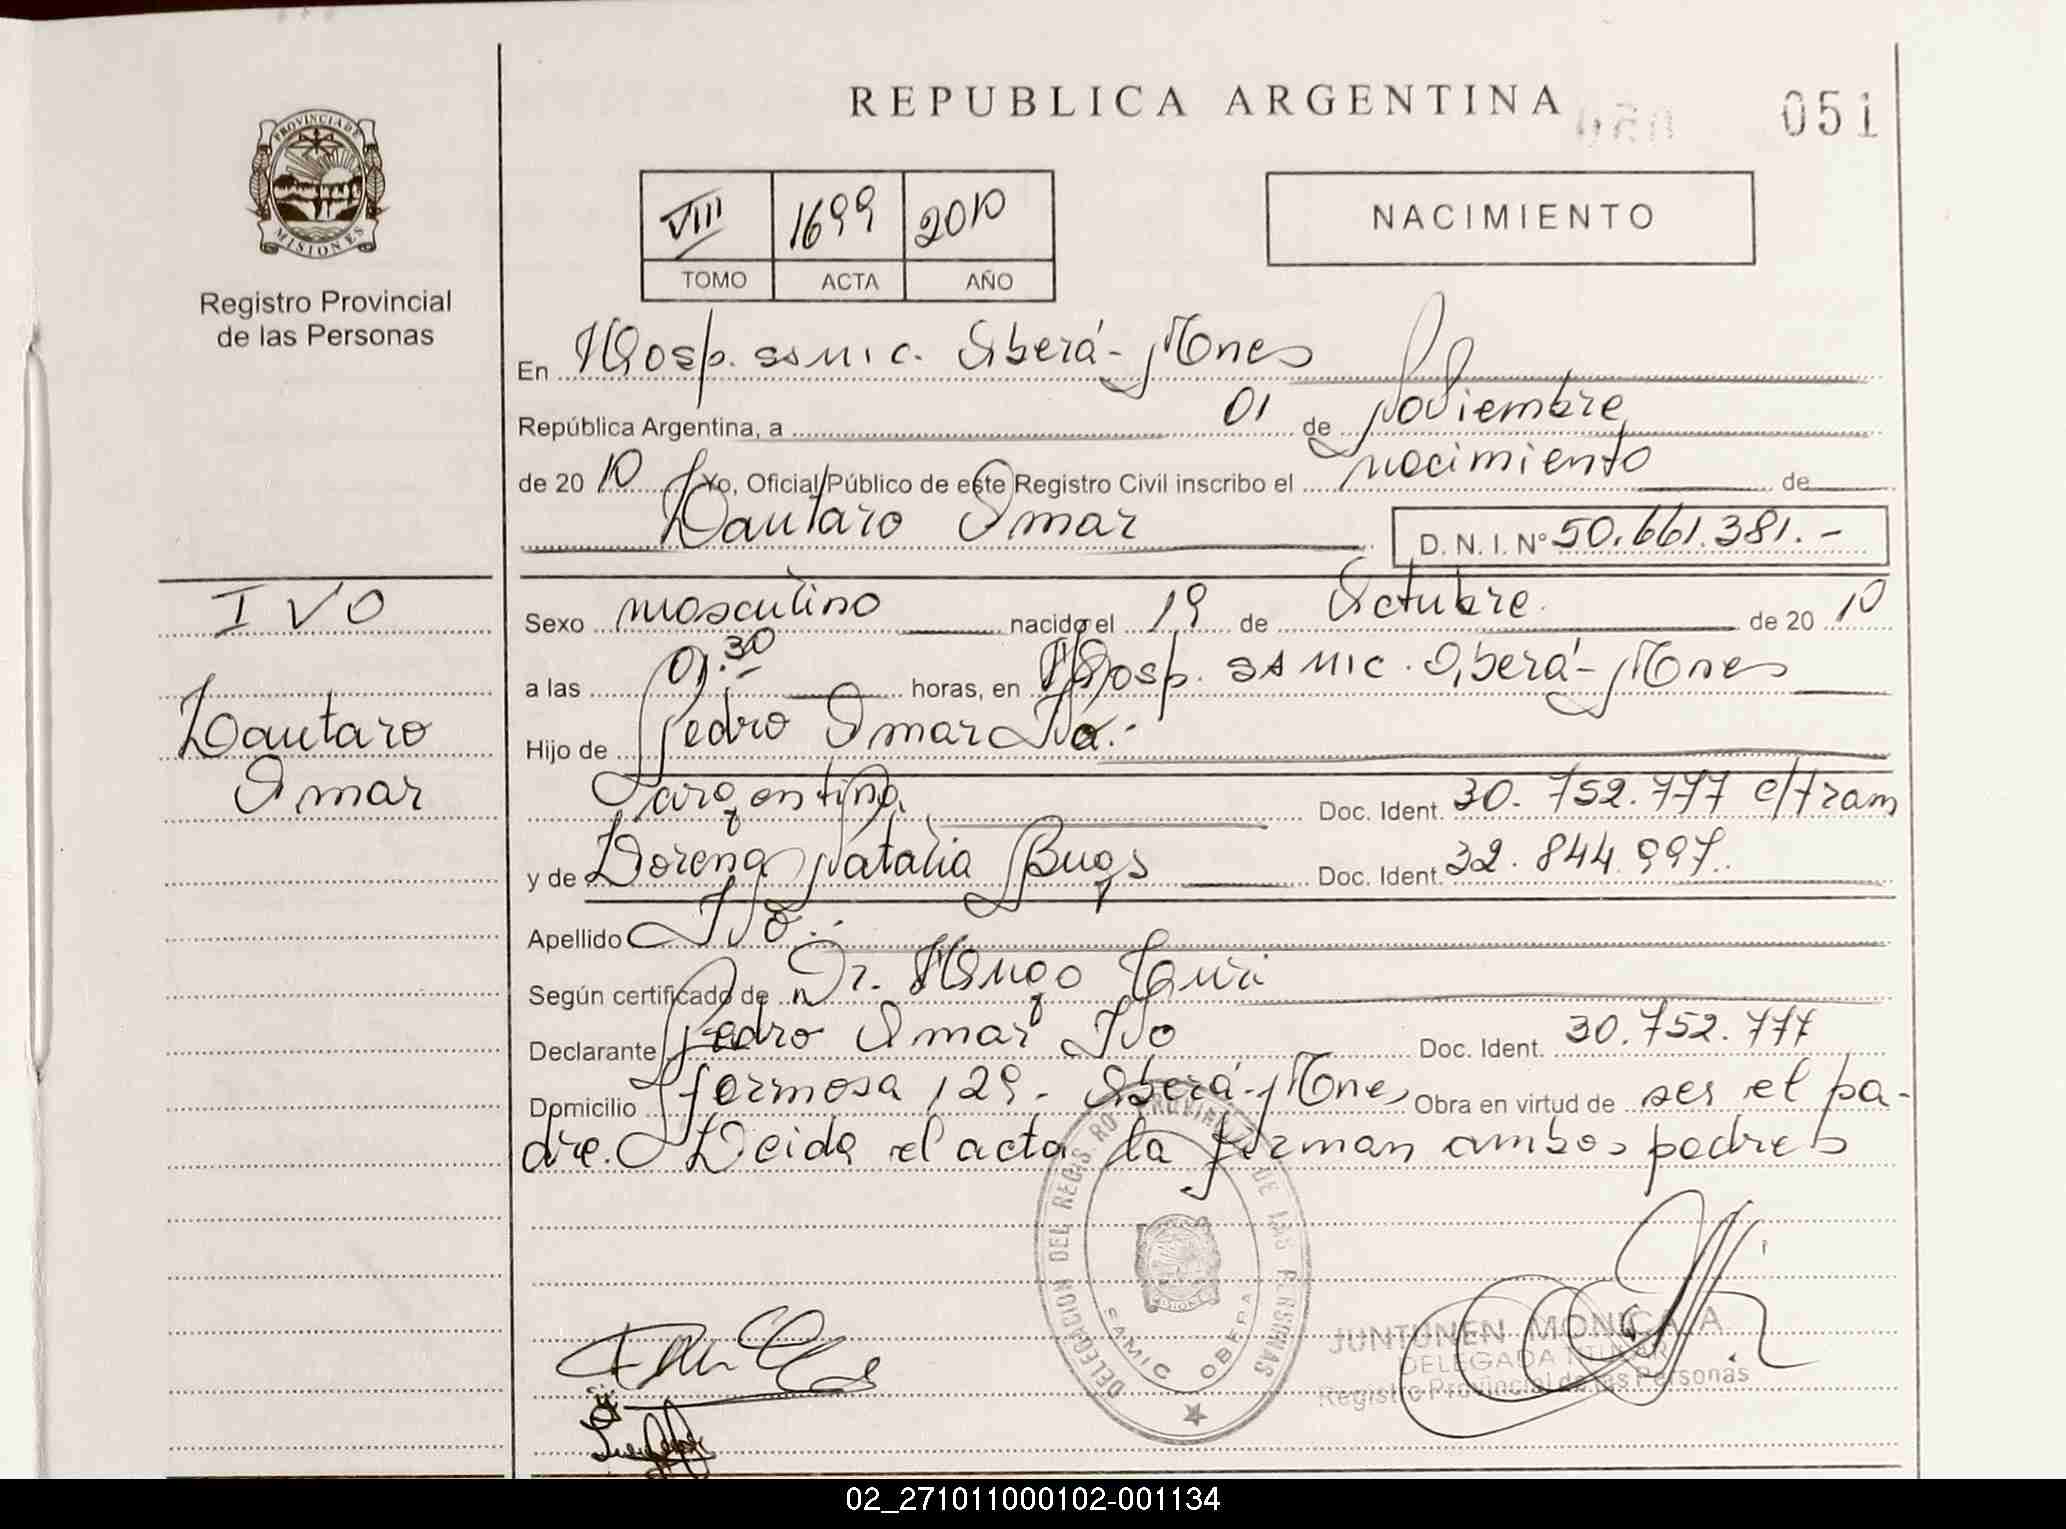 REPUBLICA ARGENTINA
051
PROVINCIA DE
MISIONES
Registro Provincial
de las Personas
VIII 1699 2010
TOMO ACTA AÑO
NACIMIENTO
En Hosp. SAMIC. Oberá - Mnes
República Argentina, a 01 de Noviembre
de 2010 Yo, Oficial Público de este Registro Civil inscribo el nacimiento de
Lautaro Omar
D. N. I. N° 50.661.381.-
IVO
Lautaro
Omar
Sexo masculino nacido el 19 de Octubre de 2010
a las 01.30 horas, en Hosp. SAMIC. Oberá - Mnes
Hijo de Pedro Omar Ivo.-
argentina Doc. Ident. 30.752.777 e/tram
y de Lorena Natalia Bugs Doc. Ident. 32.844.997.
Apellido Ivo.-
Según certificado de Dr. Hugo
Declarante Pedro Omar Ivo Doc. Ident. 30.752.777
Domicilio formosa 129. Oberá - Mnes Obra en virtud de ser el pa-
dre. Leida el acta la firman ambos padres
DELEGACION DEL REGISTRO PROVINCIAL DE LAS PERSONAS
SAMIC OBERA
JUNTUNEN MONICA A
DELEGADA TITULAR
Registro Provincial de las Personas
02_271011000102-001134